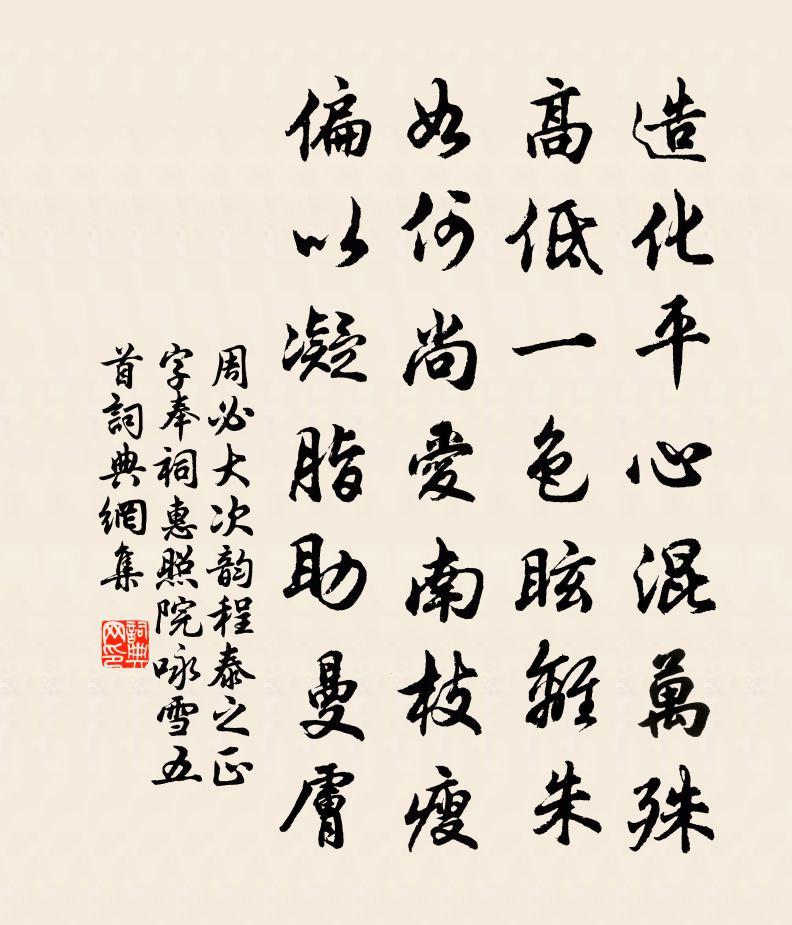 造化平心混萬殊
高低一色眩離朱
如何尚愛南枝瘦
偏以凝脂助曼膚
周必大次韵程泰之正
字奉祠惠照院咏雪五
首詞典網集
詞典
网印